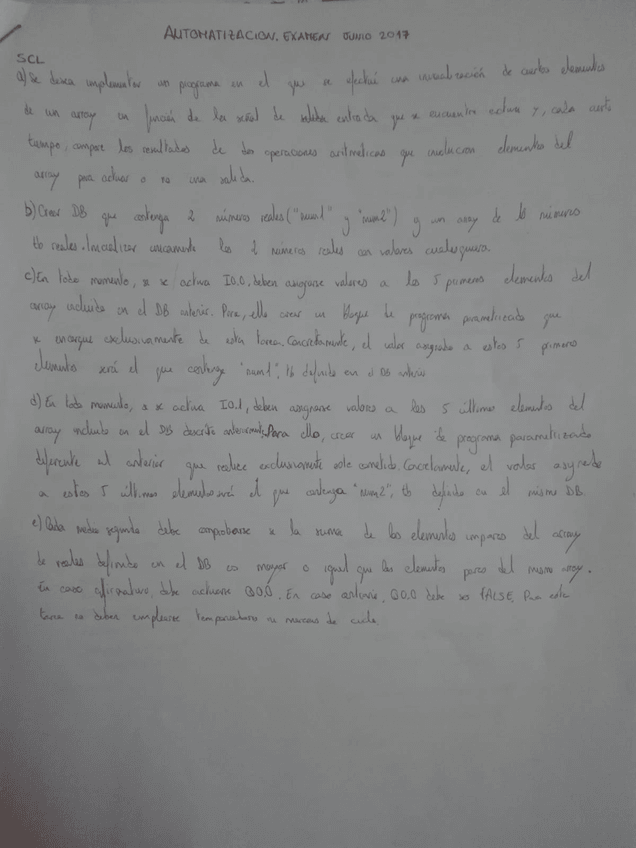 AUTOMATIZACION. EXAMEN JUNIO 2017
SCL
a) Se desea implementar un programa en el que se efectúe una inicialización de ciertos elementos
de un array en función de la señal de entrada que se encuentre activa y, cada cierto
tiempo, compare los resultados de dos operaciones aritméticas que involucran elementos del
array para activar o no una salida.
b) Crear DB que contenga 2 números reales ("num1" y "num2") y un array de 10 números
tb reales. Inicializar únicamente los 2 números reales con valores cualesquiera.
c) En todo momento, si se activa I0.0, deben asignarse valores a los 5 primeros elementos del
array incluido en el DB anterior. Para ello crear un bloque de programa parametrizado que
se encargue exclusivamente de esta tarea. Concretamente, el valor asignado a estos 5 primeros
elementos será el que contenga "num1", tb definido en el DB anterior
d) En todo momento, si se activa I0.1, deben asignarse valores a los 5 últimos elementos del
array incluido en el DB descrito anteriormente. Para ello, crear un bloque de programa parametrizado
diferente al anterior que realice exclusivamente este cometido. Concretamente, el valor asignado
a estos 5 últimos elementos será el que contenga "num2", tb definido en el mismo DB.
e) Cada medio segundo debe comprobarse si la suma de los elementos impares del array
de reales definido en el DB es mayor o igual que los elementos pares del mismo array.
En caso afirmativo, debe activarse Q0.0. En caso contrario, Q0.0 debe ser FALSE. Para esta
tarea no deben emplearse temporizadores ni marcas de ciclo.